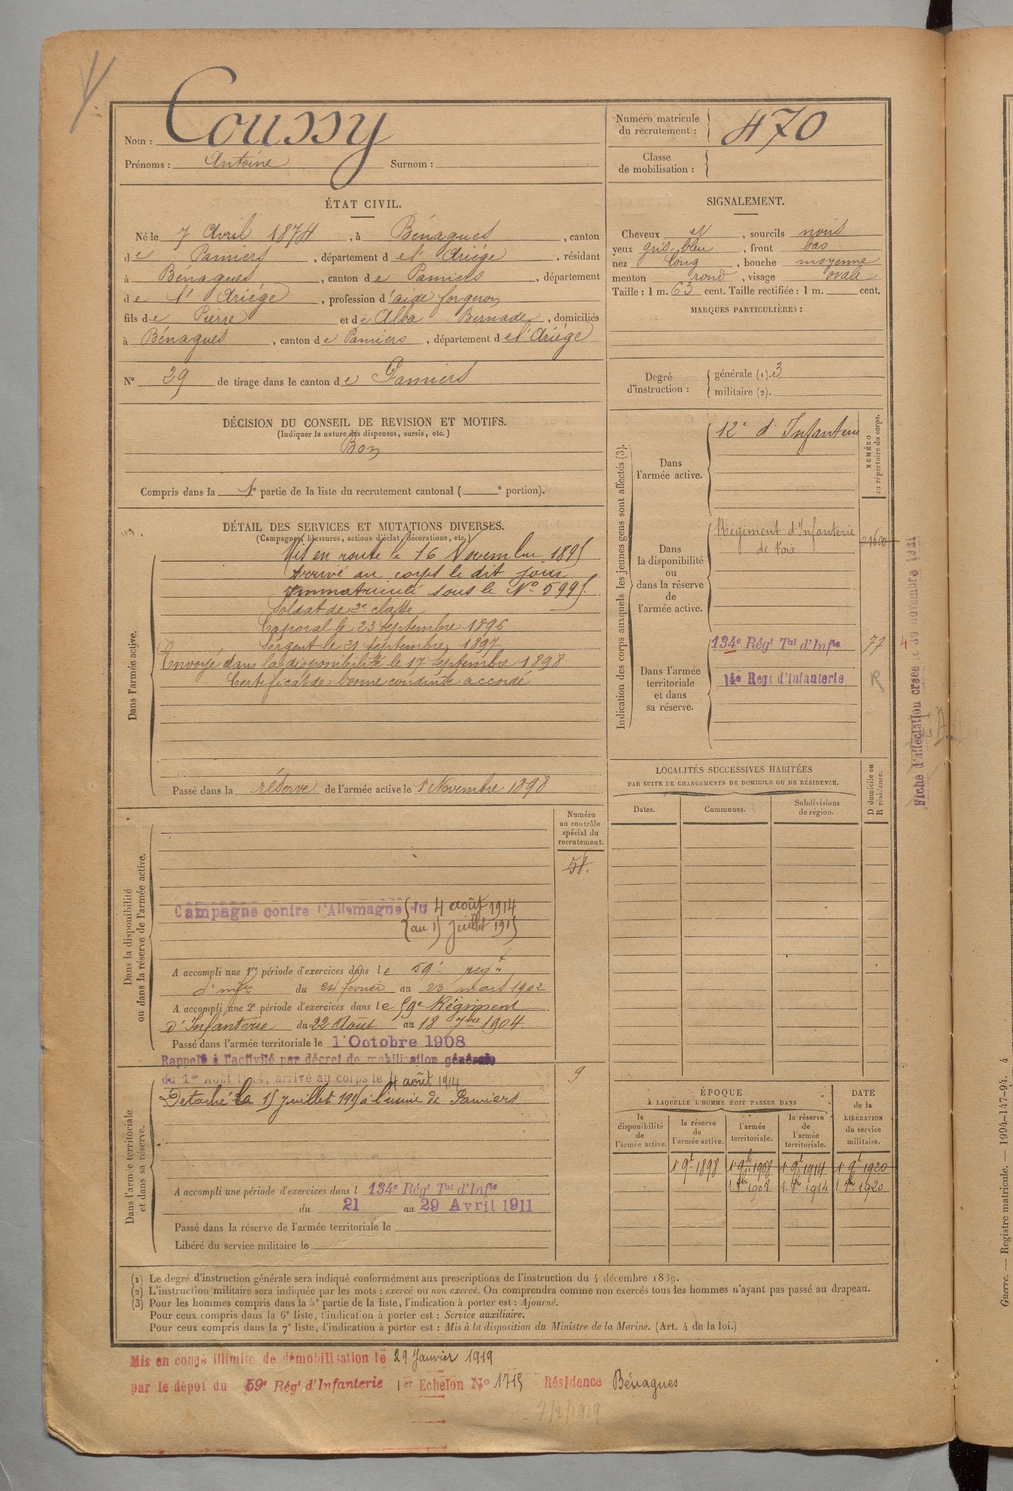 Nom : Coussy
Prénoms : Antoine Surnom :
Numéro matricule du recrutement : 470
Classe de mobilisation :
ÉTAT CIVIL.
Né le 7 Avril 1874, à Bénagues, canton
de Pamiers, département de l'Ariège, résidant
à Bénagues, canton de Pamiers, département
de l'Ariège, profession d'aide forgeron
fils de Pierre et de Alba Bernade, domiciliés
à Bénagues, canton de Pamiers, département de l'Ariège
N° 29 de tirage dans le canton de Pamiers
SIGNALEMENT.
Cheveux N, sourcils noirs
yeux gris-bleu, front bas
nez long, bouche moyenne
menton rond, visage ovale
Taille : 1 m. 63 cent. Taille rectifiée : 1 m. cent.
MARQUES PARTICULIÈRES :
Degré d'instruction : générale (1). 3
militaire (2).
DÉCISION DU CONSEIL DE REVISION ET MOTIFS.
(Indiquer la nature des dispenses, sursis, etc.)
Bon
Compris dans la 1e partie de la liste du recrutement cantonal ( e portion).
DÉTAIL DES SERVICES ET MUTATIONS DIVERSES.
(Campagnes, blessures, actions d'éclat, décorations, etc.)
Dans l'armée active.
Mis en route le 16 Novembre 1895
Arrivé au corps le dit jour
Immatriculé sous le N° 5995
Soldat de 2e classe
Caporal le 23 septembre 1896
Sergent le 21 septembre 1897
Envoyé dans la disponibilité le 17 septembre 1898
Certificat de bonne conduite accordé
Passé dans la réserve de l'armée active le 1 Novembre 1898
Indication des corps auxquels les jeunes gens sont affectés (3).
NUMÉRO au répertoire du corps.
Dans l'armée active.
12e d'Infanterie
Dans la disponibilité ou dans la réserve de l'armée active.
Régiment d'Infanterie
de Foix
Dans l'armée territoriale et dans sa réserve.
134e Régt Tal d'Infie 77
14e Regt d'Infanterie R
LOCALITÉS SUCCESSIVES HABITÉES
PAR SUITE DE CHANGEMENTS DE DOMICILE OU DE RÉSIDENCE.
Dates. Communes. Subdivisions de région. D domicile ou R résidence.
Dans la disponibilité ou dans la réserve de l'armée active.
Numéro au contrôle spécial du recrutement.
58.
Campagne contre l'Allemagne du 4 août 1914
au 15 juillet 1915
A accompli une 1re période d'exercices dans le 59e régt
d'infie du 24 février au 23 mars 1902
A accompli une 2e période d'exercices dans le 59e Régiment
d'Infanterie du 22 Août au 18 7bre 1904
Passé dans l'armée territoriale le 1 Octobre 1908
Rappelé à l'activité par décret de mobilisation générale
du 1er Août 1914, arrivé au corps le 4 août 1914
Dans l'armée territoriale et dans sa réserve.
9
Détaché le 15 juillet 1915 à l'usine de Pamiers
A accompli une période d'exercices dans l 134e Régt Tal d'Infie
du 21 au 29 Avril 1911
Passé dans la réserve de l'armée territoriale le
Libéré du service militaire le
ÉPOQUE
À LAQUELLE L'HOMME DOIT PASSER DANS
la disponibilité de l'armée active. la réserve de l'armée active. l'armée territoriale. la réserve de l'armée territoriale. DATE de la LIBÉRATION du service militaire.
1 9bre 1898 1 9bre 1908 1 9bre 1914 1 9bre 1920
1 8bre 1908 1 8bre 1914 1 8bre 1920
(1) Le degré d'instruction générale sera indiqué conformément aux prescriptions de l'instruction du 4 décembre 1889.
(2) L'instruction militaire sera indiquée par les mots : exercé ou non exercé. On comprendra comme non exercés tous les hommes n'ayant pas passé au drapeau.
(3) Pour les hommes compris dans la 5e partie de la liste, l'indication à porter est : Ajourné.
Pour ceux compris dans la 6e liste, l'indication à porter est : Service auxiliaire.
Pour ceux compris dans la 7e liste, l'indication à porter est : Mis à la disposition du Ministre de la Marine. (Art. 4 de la loi.)
Mis en congé illimité de démobilisation le 29 Janvier 1919
par le dépôt du 59e Régt d'Infanterie 1er Echelon N° 1715 Résidence Bénagues
7/2/1919
Guerre. — Registre matricule. — 1994-147-94. 4